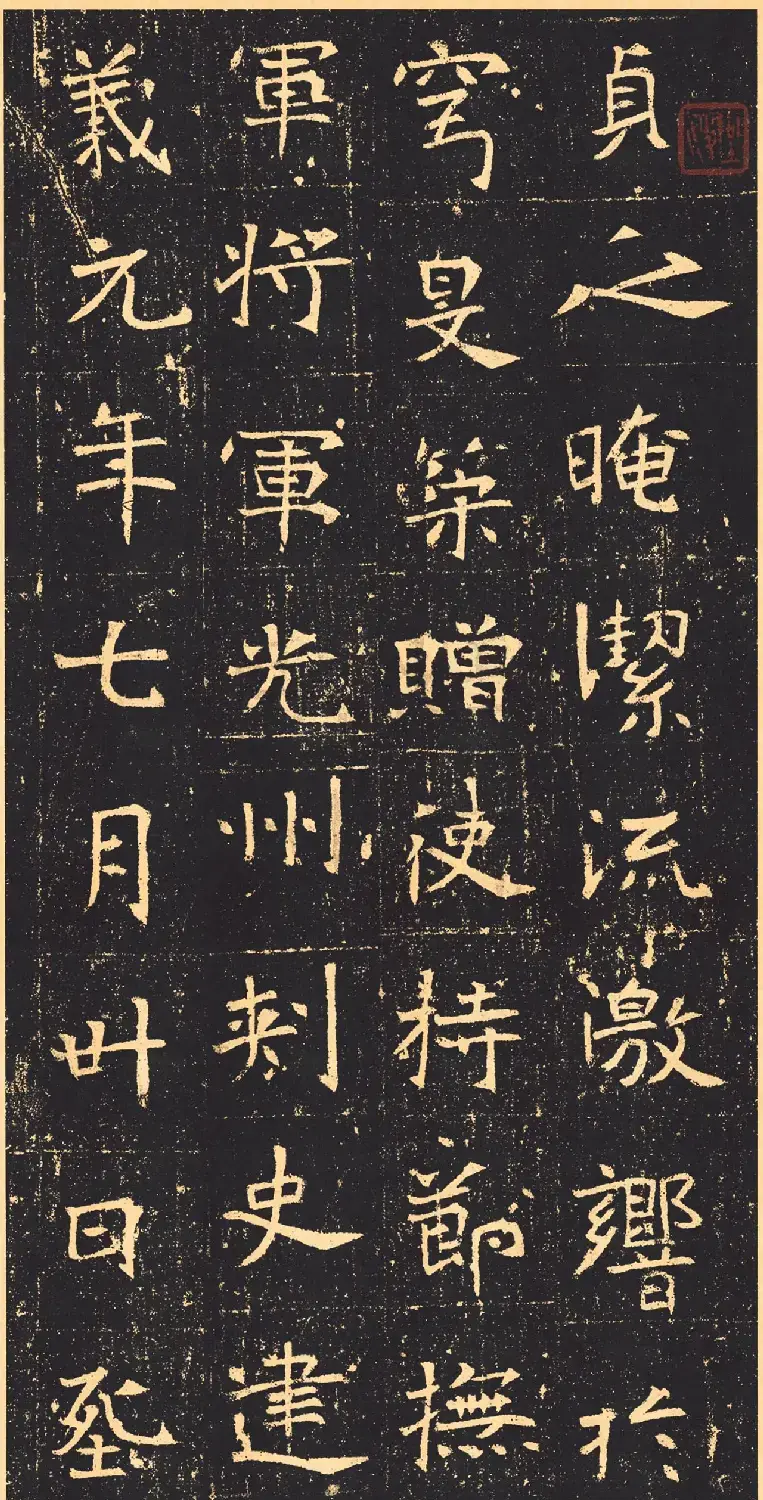 貞之晻潔流激響於
穹旻策贈使持節撫
軍將軍光州刺史建
義元年七月卅日塟